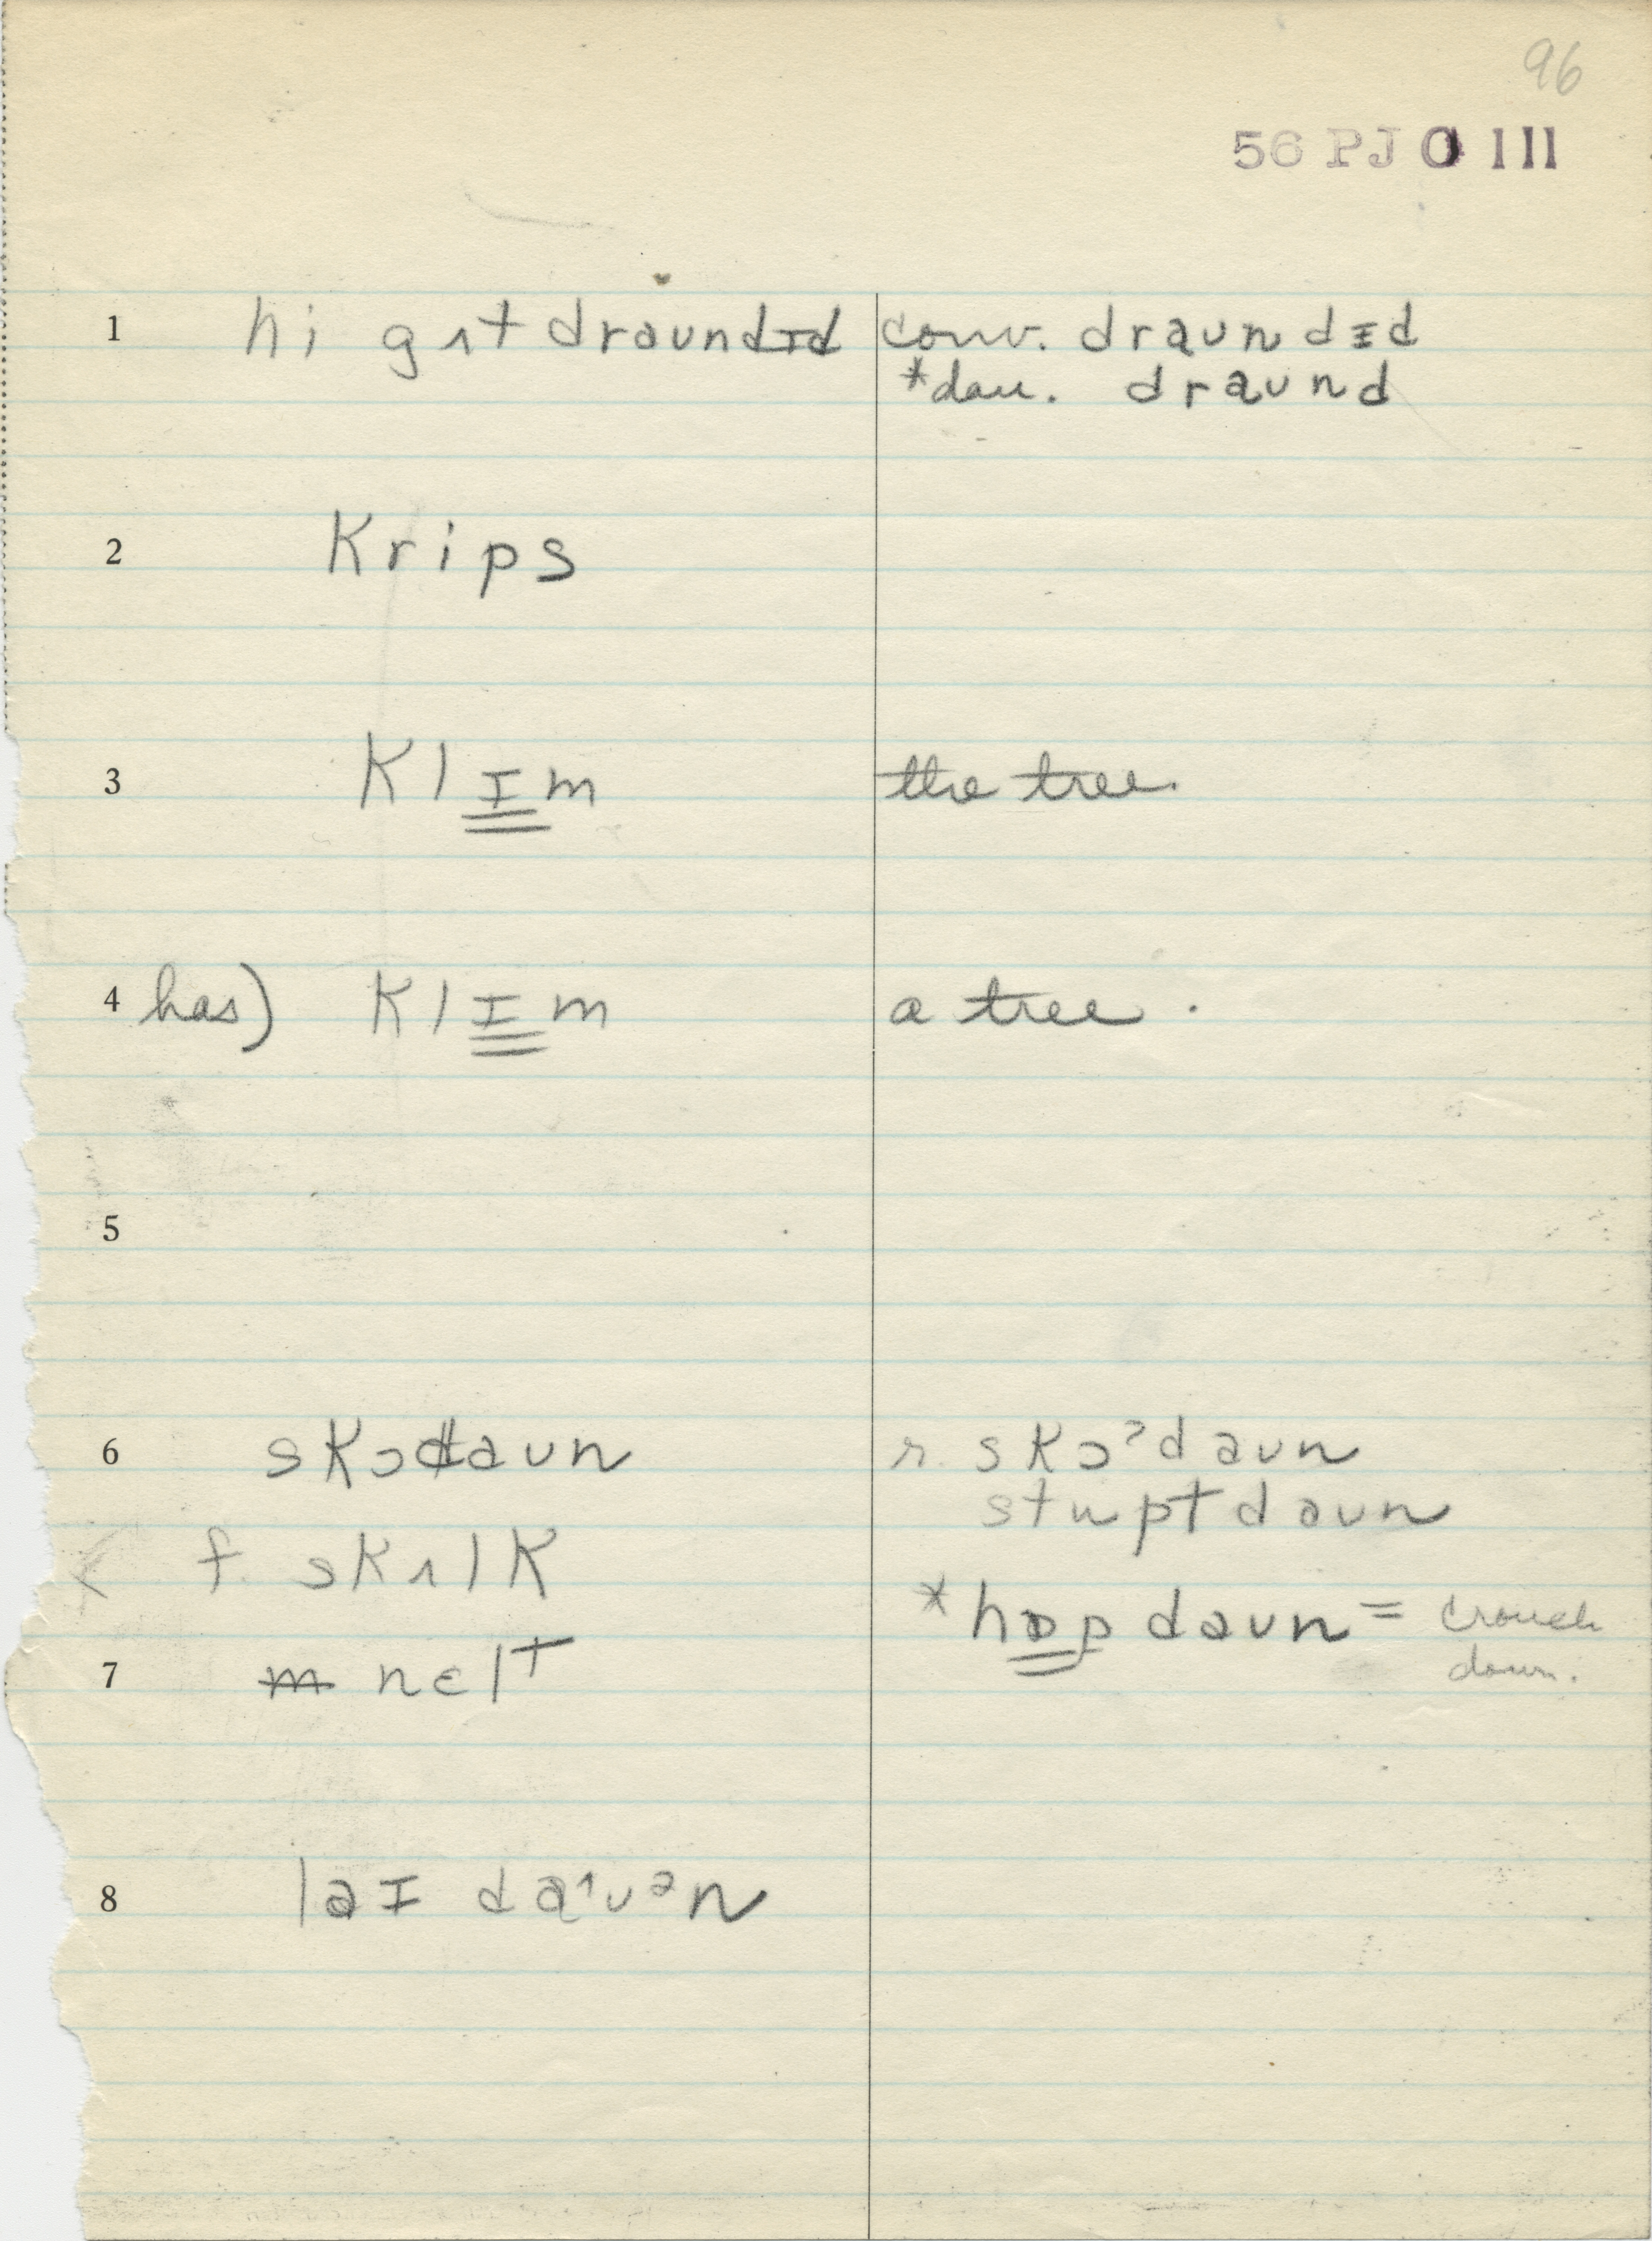 96
56 PJ 0 111
1 hi gʌt draundɪd conv. draundɪd
*dau. draund
2 Krips
3 Klɪm the tree.
4 has) Klɪm a tree.
5
6 skɔdaun r. skɔˀdaun
stupt daun
f. skʌlk
*hɒp daun = crouch
down.
7 m nɛlt
8 laɪ daᶺuᵊn